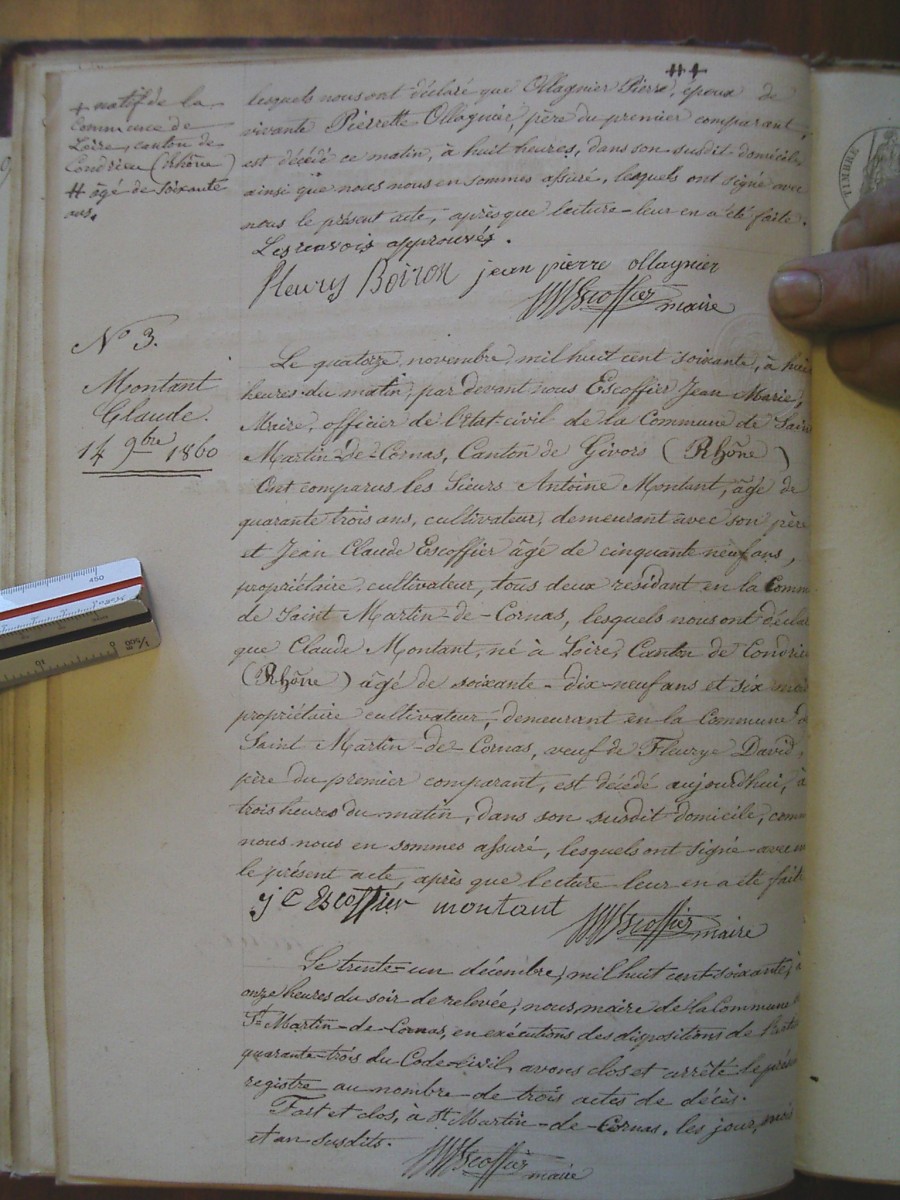 + natif de la
Commune de
Loire, canton de
Condrieu (Rhône)
# âgé de soixante
ans.
# +
lesquels nous ont déclaré que Ollagnier Pierre, époux de
vivante Pierrette Ollagnier, père du premier comparant,
est décédé ce matin, à huit heures, dans son susdit domicile
ainsi que nous nous en sommes assuré, lesquels ont signé avec
nous le présent acte, après que lecture leur en a été faite.
Les renvois approuvés.
Fleury Boiron jean pierre ollagnier
Escoffier maire
N° 3.
Montant
Claude.
14 9bre 1860
Le quatorze novembre mil huit cent soixante, à huit
heures du matin, par devant nous Escoffier Jean Marie,
Maire, officier de l'Etat-civil de la Commune de Saint
Martin-de-Cornas, Canton de Givors (Rhône)
Ont comparus les Sieurs Antoine Montant, âgé de
quarante trois ans, cultivateur, demeurant avec son père
et Jean Claude Escoffier âgé de cinquante neuf ans,
propriétaire cultivateur, tous deux residant en la Comm
de Saint Martin-de-Cornas, lesquels nous ont déclar
que Claude Montant, né à Loire, Canton de Condrie
(Rhône) âgé de soixante-dix-neuf ans et six mois
propriétaire cultivateur, demeurant en la Commune d
Saint Martin-de-Cornas, veuf de Fleurye David,
père du premier comparant, est décédé aujourd'hui, à
trois heures du matin, dans son susdit domicile, comm
nous nous en sommes assuré, lesquels ont signé avec n
le présent acte, après que lecture leur en a été faite
j C Escoffier montant
Escoffier maire
Le trente-un décembre, mil huit cent soixante, à
onze heures du soir de relevée, nous, maire de la Commune
St Martin-de-Cornas, en exécutions des dispositions de l'artic
quarante-trois du Code-civil, avons clos et arrêté le prése
registre au nombre de trois actes de décès.
Fast et clos, à St Martin-de-Cornas, les jour, mois
et an susdits.
Escoffier maire
TIMBRE
450